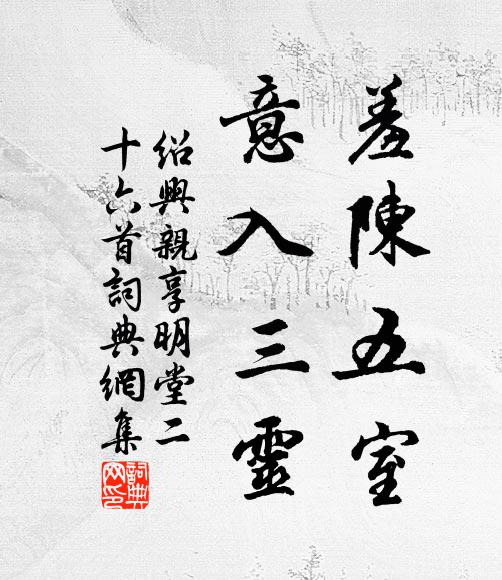 羞陳五室
意入三靈
紹興親享明堂二
十六首詞典網集
詞典網印